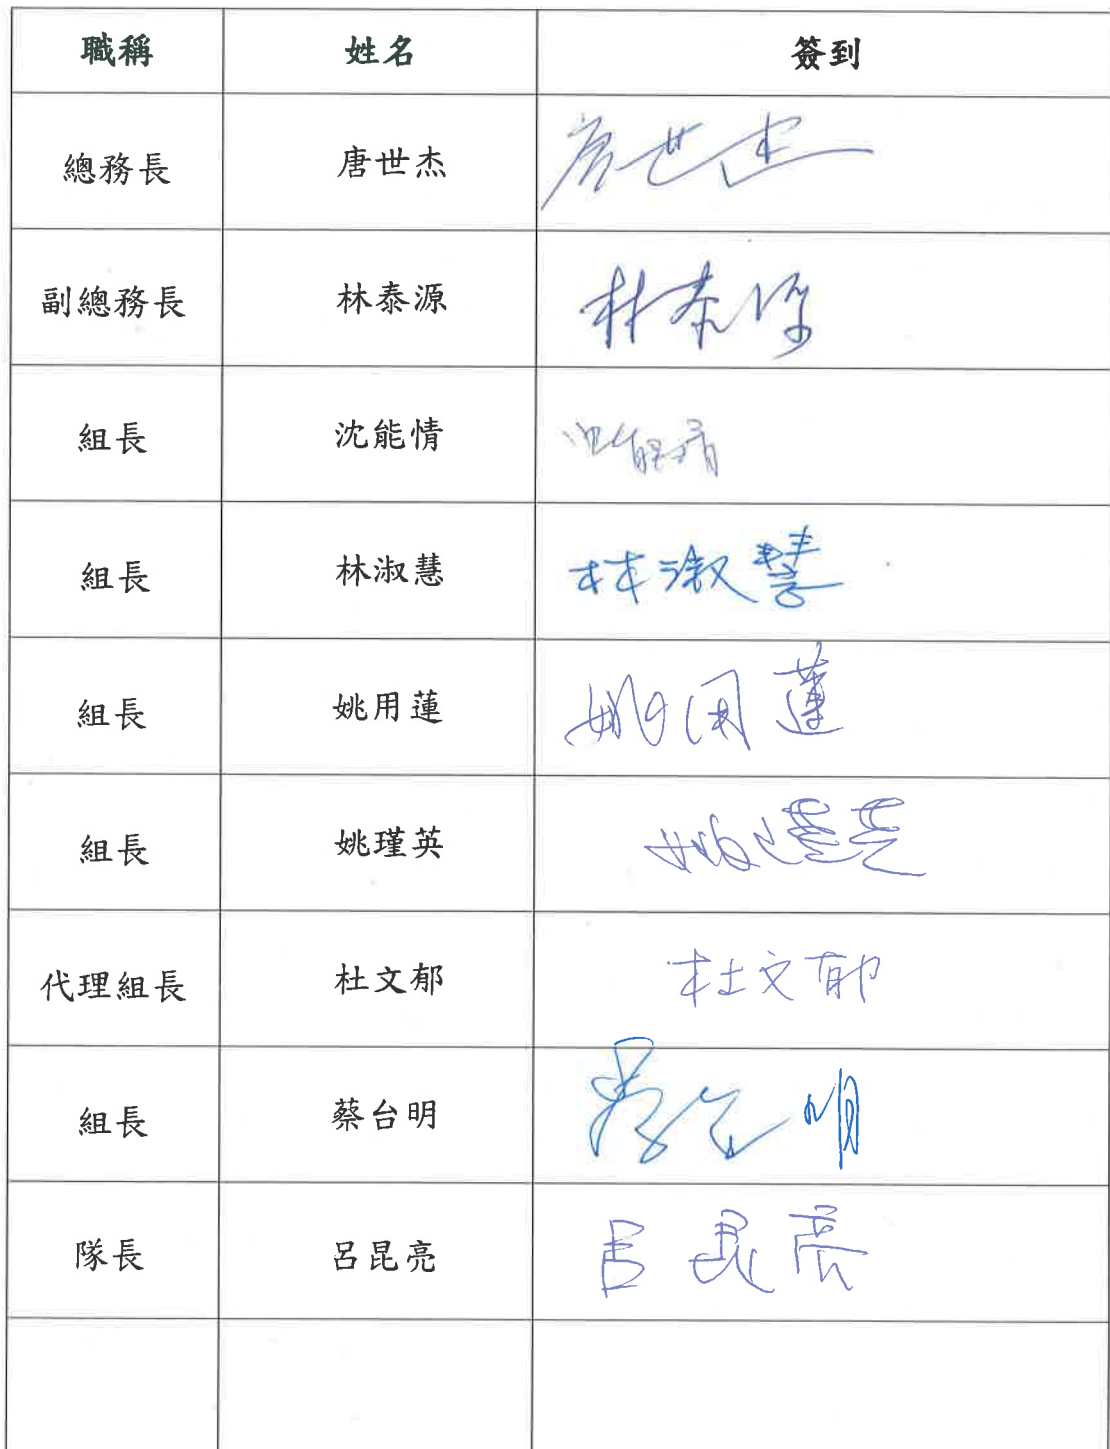 職稱 姓名 簽到
總務長 唐世杰 唐世杰
副總務長 林泰源 林泰源
組長 沈能情 沈能情
組長 林淑慧 林淑慧
組長 姚用蓮 姚用蓮
組長 姚瑾英 姚瑾英
代理組長 杜文郁 杜文郁
組長 蔡台明 蔡台明
隊長 呂昆亮 呂昆亮